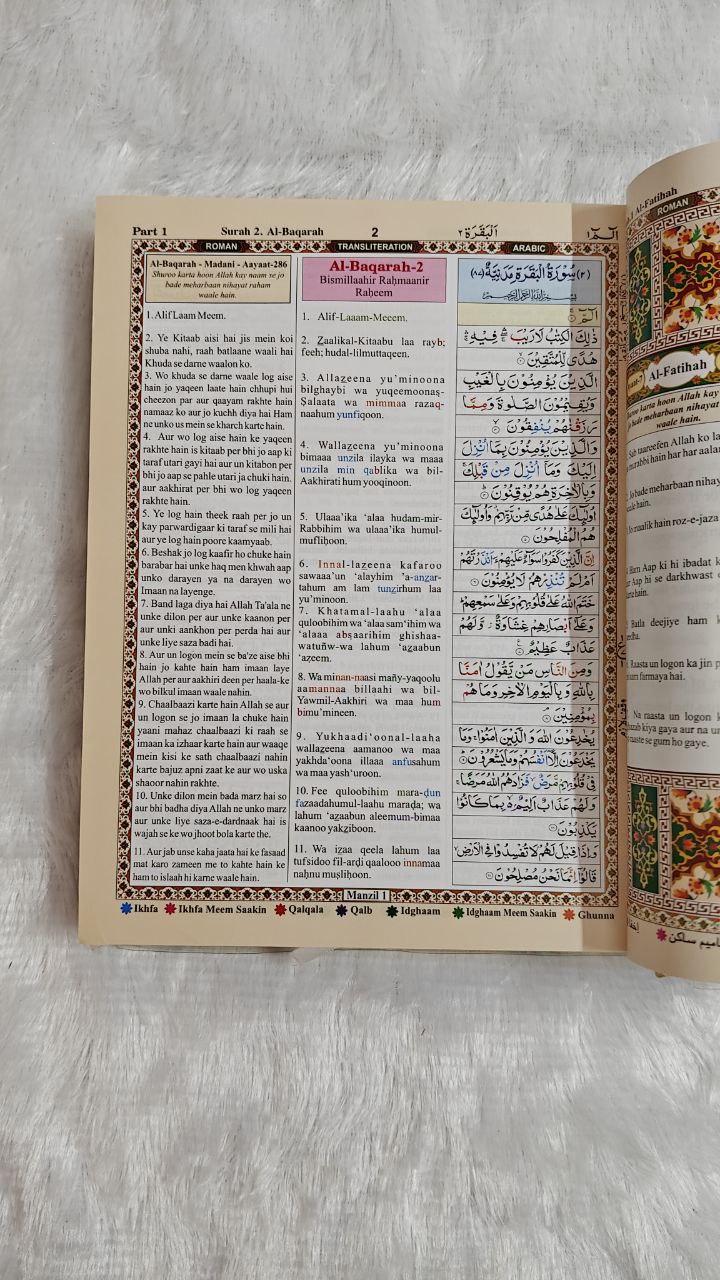 Part 1 Surah 2. Al-Baqarah 2 البقرة ٢ الٓمّٓ ١
ROMAN TRANSLITERATION ARABIC
Al-Baqarah - Madani - Aayaat-286
Shuroo karta hoon Allah kay naam se jo
bade meharbaan nihayat raham
waale hain.
1. Alif Laam Meem.
2. Ye Kitaab aisi hai jis mein koi
shuba nahi, raah batlaane waali hai
Khuda se darne waalon ko.
3. Wo khuda se darne waale log aise
hain jo yaqeen laate hain chhupi hui
cheezon par aur qaayam rakhte hain
namaaz ko aur jo kuchh diya hai Ham
ne unko us mein se kharch karte hain.
4. Aur wo log aise hain ke yaqeen
rakhte hain is kitaab per bhi jo aap ki
taraf utari gayi hai aur un kitabon per
bhi jo aap se pahle utari ja chuki hain.
aur aakhirat per bhi wo log yaqeen
rakhte hain.
5. Ye log hain theek raah per jo un
kay parwardigaar ki taraf se mili hai
aur ye log hain poore kaamyaab.
6. Beshak jo log kaafir ho chuke hain
barabar hai unke haq men khwah aap
unko darayen ya na darayen wo
Imaan na layenge.
7. Band laga diya hai Allah Ta'ala ne
unke dilon per aur unke kaanon per
aur unki aankhon per perda hai aur
unke liye saza badi hai.
8. Aur un logon mein se ba'ze aise bhi
hain jo kahte hain ham imaan laye
Allah per aur aakhiri deen per haala-ke
wo bilkul imaan waale nahin.
9. Chaalbaazi karte hain Allah se aur
un logon se jo imaan la chuke hain
yaani mahaz chaalbaazi ki raah se
imaan ka izhaar karte hain aur waaqe
mein kisi ke sath chaalbaazi nahin
karte bajuz apni zaat ke aur wo uska
shaoor nahin rakhte.
10. Unke dilon mein bada marz hai so
aur bhi badha diya Allah ne unko marz
aur unke liye saza-e-dardnaak hai is
wajah se ke wo jhoot bola karte the.
11. Aur jab unse kaha jaata hai ke fasaad
mat karo zameen me to kahte hain ke
ham to islaah hi karne waale hain.
Al-Baqarah-2
Bismillaahir Raḥmaanir
Raḥeem
1. Alif-Laaam-Meeem.
2. Ẕaalikal-Kitaabu laa rayb;
feeh; hudal-lilmuttaqeen.
3. Allaẕeena yu'minoona
bilghaybi wa yuqeemoonaṣ-
Ṣalaata wa mimmaa razaq-
naahum yunfiqoon.
4. Wallaẕeena yu'minoona
bimaaa unzila ilayka wa maaa
unzila min qablika wa bil-
Aakhirati hum yooqinoon.
5. Ulaaa'ika 'alaa hudam-mir-
Rabbihim wa ulaaa'ika humul-
mufliḥoon.
6. Innal-lazeena kafaroo
sawaaa'un 'alayhim 'a-anẕar-
tahum am lam tunẕirhum laa
yu'minoon.
7. Khatamal-laahu 'alaa
quloobihim wa 'alaa sam'ihim wa
'alaaa abṣaarihim ghishaa-
watuñw-wa lahum 'aẕaabun
'aẓeem.
8. Wa minan-naasi mañy-yaqoolu
aamannaa billaahi wa bil-
Yawmil-Aakhiri wa maa hum
bimu'mineen.
9. Yukhaadi'oonal-laaha
wallaẕeena aamanoo wa maa
yakhda'oona illaaa anfusahum
wa maa yash'uroon.
10. Fee quloobihim mara-ḍun
fazaadahumul-laahu maraḍa; wa
lahum 'aẕaabun aleemum-bimaa
kaanoo yakẕiboon.
11. Wa iẕaa qeela lahum laa
tufsidoo fil-arḍi qaalooo innamaa
naḥnu muṣliḥoon.
(٢) سُوْرَةُ الْبَقَرَةِ مَدَنِيَّةٌ (٨٧)
بِسْمِ اللّٰهِ الرَّحْمٰنِ الرَّحِيْمِ
الٓمّٓ ۚ
ذٰلِكَ الْكِتٰبُ لَا رَيْبَ ۛ فِيْهِ ۛ
هُدًى لِّلْمُتَّقِيْنَ
الَّذِيْنَ يُؤْمِنُوْنَ بِالْغَيْبِ
وَيُقِيْمُوْنَ الصَّلٰوةَ وَمِمَّا
رَزَقْنٰهُمْ يُنْفِقُوْنَ
وَالَّذِيْنَ يُؤْمِنُوْنَ بِمَآ اُنْزِلَ
اِلَيْكَ وَمَآ اُنْزِلَ مِنْ قَبْلِكَ
وَبِالْاٰخِرَةِ هُمْ يُوْقِنُوْنَ
اُولٰٓئِكَ عَلٰى هُدًى مِّنْ رَّبِّهِمْ وَاُولٰٓئِكَ
هُمُ الْمُفْلِحُوْنَ
اِنَّ الَّذِيْنَ كَفَرُوْا سَوَآءٌ عَلَيْهِمْ ءَاَنْذَرْتَهُمْ
اَمْ لَمْ تُنْذِرْهُمْ لَا يُؤْمِنُوْنَ
خَتَمَ اللّٰهُ عَلٰى قُلُوْبِهِمْ وَعَلٰى سَمْعِهِمْ
وَعَلٰٓى اَبْصَارِهِمْ غِشَاوَةٌ وَّلَهُمْ
عَذَابٌ عَظِيْمٌ
وَمِنَ النَّاسِ مَنْ يَّقُوْلُ اٰمَنَّا
بِاللّٰهِ وَبِالْيَوْمِ الْاٰخِرِ وَمَا هُمْ
بِمُؤْمِنِيْنَ
يُخٰدِعُوْنَ اللّٰهَ وَالَّذِيْنَ اٰمَنُوْا وَمَا
يَخْدَعُوْنَ اِلَّآ اَنْفُسَهُمْ وَمَا يَشْعُرُوْنَ
فِيْ قُلُوْبِهِمْ مَّرَضٌ فَزَادَهُمُ اللّٰهُ مَرَضًا
وَلَهُمْ عَذَابٌ اَلِيْمٌۢ بِمَا كَانُوْا
يَكْذِبُوْنَ
وَاِذَا قِيْلَ لَهُمْ لَا تُفْسِدُوْا فِى الْاَرْضِ
قَالُوْٓا اِنَّمَا نَحْنُ مُصْلِحُوْنَ
Manzil 1
Ikhfa Ikhfa Meem Saakin Qalqala Qalb Idghaam Idghaam Meem Saakin Ghunna
1 Al-Fatihah
ROMAN
Al-Fatihah
karta hoon Allah kay
bade meharbaan nihayat
waale hain.
Sab taareefen Allah ko la
murabbi hain har har aalam
bade meharbaan nihay
waale hain.
maalik hain roz-e-jaza
Ham Aap ki hi ibadat k
Aap hi se darkhwast
karte hain.
Batla deejiye ham
Raasta un logon ka jin p
farmaya hai.
Na raasta un logon
kiya gaya aur na un
raaste se gum ho gaye.
ميم ساكن